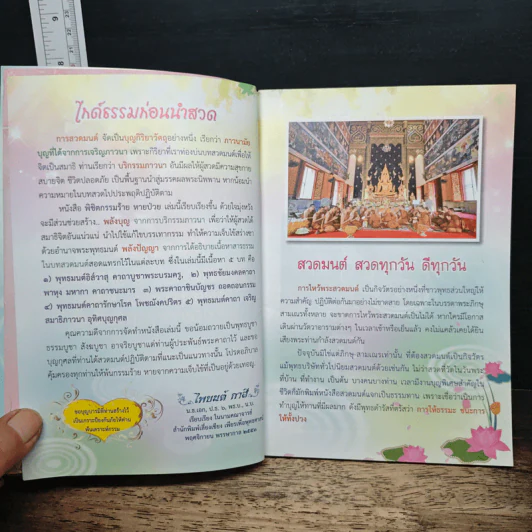 ไกด์ธรรมก่อนนำสวด
การสวดมนต์ จัดเป็นบุญกิริยาวัตถุอย่างหนึ่ง เรียกว่า ภาวนามัย
บุญที่ได้จากการเจริญภาวนา เพราะกิริยาที่เราท่องบ่นบทสวดมนต์เพื่อให้
จิตเป็นสมาธิ ท่านเรียกว่า บริกรรมภาวนา อันมีผลให้ผู้สวดมีความสุขกาย
สบายจิต ชีวิตปลอดภัย เป็นพื้นฐานนำสู่มรรคผลพระนิพพาน หากน้อมนำ
ความหมายในบทสวดไปประพฤติปฏิบัติตาม
หนังสือ พิชิตกรรมร้าย หายป่วย เล่มนี้เรียบเรียงขึ้น ด้วยใจมุ่งหวัง
จะมีส่วนช่วยสร้าง.. พลังบุญ จากการบริกรรมภาวนา เพื่อว่าให้ผู้สวดได้
สมาธิจิตอันแน่วแน่ นำไปใช้แก้ไขบรรเทากรรม ทำให้ความเจ็บไข้สร่างซา
ด้วยอำนาจพระพุทธมนต์ พลังปัญญา จากการได้อธิบายเนื้อหาสาระธรรม
ในบทสวดมนต์สอดแทรกไว้ในแต่ละบท ซึ่งในเล่มนี้มีเนื้อหา ๕ บท คือ
๑) พุทธมนต์อิติวาสุ คาถาบูชาพระบรมครู, ๒) พุทธชัยมงคลคาถา
พาหุง มหากา คาถาชนะมาร ๓) พระคาถาชินบัญชร ถอดถอนกรรม
๔) พุทธมนต์คาถารักษาโรค โพชฌังคปริตร ๕) พุทธมนต์คาถา เจริญ
สมาธิภาวนา อุทิศบุญกุศล
คุณความดีจากการจัดทำหนังสือเล่มนี้ ขอน้อมถวายเป็นพุทธบูชา
ธรรมบูชา สังฆบูชา อาจริยบูชาแด่ท่านผู้ประพันธ์พระคาถาไว้ และขอ
บุญกุศลที่ท่านได้สวดมนต์ปฏิบัติตามที่แนะเป็นแนวทางนั้น โปรดอภิบาล
คุ้มครองทุกท่านให้พ้นกรรมร้าย หายจากความเจ็บไข้ที่เป็นอยู่ด้วยเทอญ
ไชยมล์ กาฬี
น.ธ.เอก, ป.ธ. ๖, พธ.บ., น.บ.
เรียบเรียง ในนามคณาจารย์
สำนักพิมพ์เลี่ยงเชียง เพียรเพื่อพุทธศาสน์
พฤศจิกายน พรรษากาล ๒๕๕๓
ขอบุญบารมีที่ท่านสร้างไว้
เป็นเกราะป้องกันภัยให้ท่าน
พ้นเคราะห์กรรม
สวดมนต์ สวดทุกวัน ดีทุกวัน
การไหว้พระสวดมนต์ เป็นกิจวัตรอย่างหนึ่งที่ชาวพุทธส่วนใหญ่ให้
ความสำคัญ ปฏิบัติต่อกันมาอย่างไม่ขาดสาย โดยเฉพาะในบรรดาพระภิกษุ
สามเณรทั้งหลาย จะขาดการไหว้พระสวดมนต์เป็นไม่ได้ หากใครมีโอกาส
เดินผ่านวัดวาอารามต่างๆ ในเวลาเช้าหรือเย็นแล้ว คงไม่แคล้วเคยได้ยิน
เสียงพระท่านกำลังสวดมนต์กัน
ปัจจุบันมิใช่แต่ภิกษุ-สามเณรเท่านั้น ที่ต้องสวดมนต์เป็นกิจวัตร